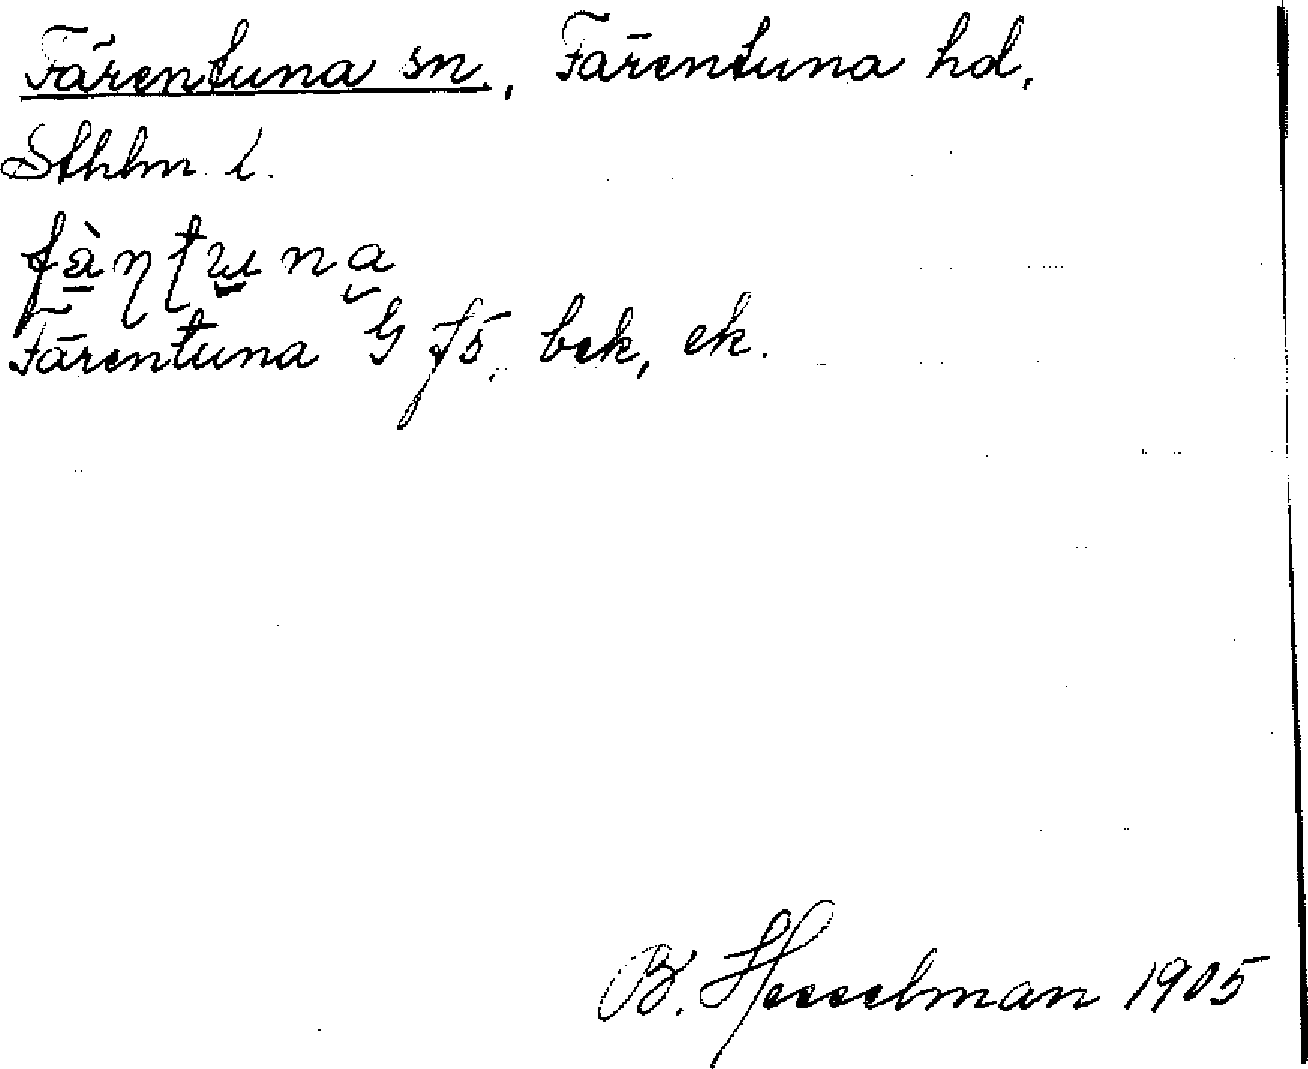 Färentuna sn., Färentuna hd,
Sthlm l.
Färentuna G f5, bek, ek.
B. Hesselman 1905